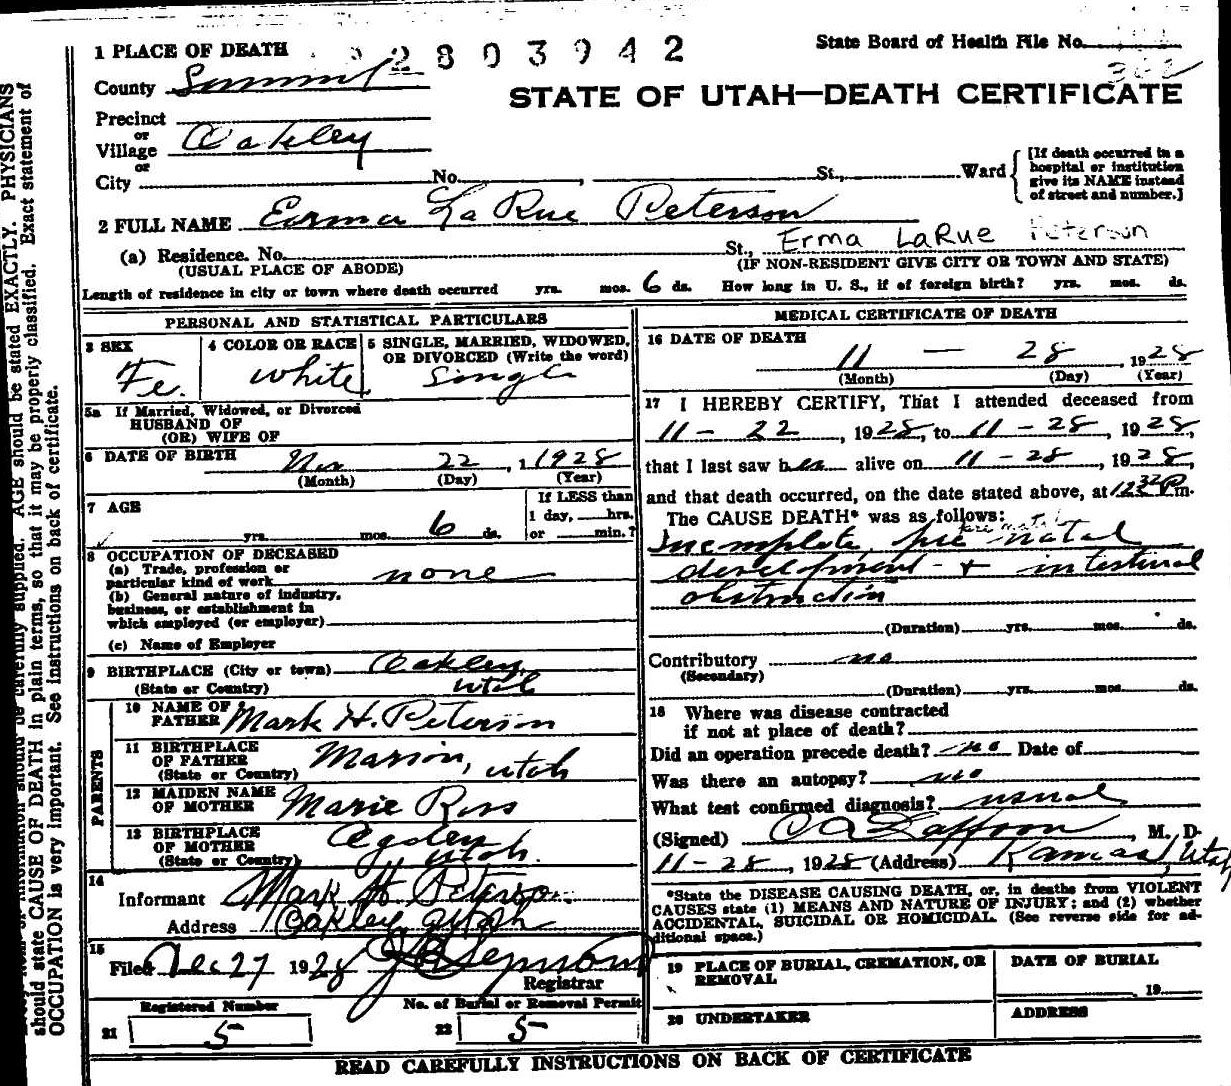 1 PLACE OF DEATH
2803942
State Board of Health File No.
County Summit
STATE OF UTAH—DEATH CERTIFICATE
Precinct
or
Village Oakley
or
City No. , St., Ward
[If death occurred in a hospital or institution give its NAME instead of street and number.]
2 FULL NAME Earma La Rue Peterson
(a) Residence. No. St., Erma LaRue Peterson
(USUAL PLACE OF ABODE) (IF NON-RESIDENT GIVE CITY OR TOWN AND STATE)
Length of residence in city or town where death occurred yrs. mos. 6 ds. How long in U. S., if of foreign birth? yrs. mos. ds.
PERSONAL AND STATISTICAL PARTICULARS
3 SEX Fe.
4 COLOR OR RACE white
5 SINGLE, MARRIED, WIDOWED, OR DIVORCED (Write the word) Single
5a If Married, Widowed, or Divorced
HUSBAND OF
(OR) WIFE OF
6 DATE OF BIRTH Nov 22, 1 1928
(Month) (Day) (Year)
7 AGE yrs. mos. 6 ds.
If LESS than
1 day, hrs.
or min.?
8 OCCUPATION OF DECEASED
(a) Trade, profession or
particular kind of work none
(b) General nature of industry,
business, or establishment in
which employed (or employer)
(c) Name of Employer
9 BIRTHPLACE (City or town) Oakley,
(State or Country) Utah
PARENTS
10 NAME OF FATHER Mark H. Peterson
11 BIRTHPLACE OF FATHER (State or Country) Marion, Utah
12 MAIDEN NAME OF MOTHER Marie Ross
13 BIRTHPLACE OF MOTHER (State or Country) Ogden Utah.
14
Informant Mark H Peterson
Address Oakley Utah
15
Filed Dec 27 1928
Registrar
Registered Number
21 5
No. of Burial or Removal Permit
22 5
MEDICAL CERTIFICATE OF DEATH
16 DATE OF DEATH
11 — 28, 1928
(Month) (Day) (Year)
17 I HEREBY CERTIFY, That I attended deceased from
11-22, 1928, to 11-28, 1928,
that I last saw her alive on 11-28, 1928,
and that death occurred, on the date stated above, at 12 32 P m.
The CAUSE DEATH* was as follows:
Incomplete pre natal
development + intestinal
obstruction
(Duration) yrs. mos. ds.
Contributory no
(Secondary)
(Duration) yrs. mos. ds.
18 Where was disease contracted
if not at place of death?
Did an operation precede death? no Date of
Was there an autopsy? no
What test confirmed diagnosis? usual
(Signed) C A Laffoon, M. D.
11-28, 1928 (Address) Kamas, Utah
*State the DISEASE CAUSING DEATH, or, in deaths from VIOLENT
CAUSES state (1) MEANS AND NATURE OF INJURY; and (2) whether
ACCIDENTAL, SUICIDAL OR HOMICIDAL. (See reverse side for ad-
ditional space.)
19 PLACE OF BURIAL, CREMATION, OR REMOVAL
DATE OF BURIAL
, 19
20 UNDERTAKER
ADDRESS
READ CAREFULLY INSTRUCTIONS ON BACK OF CERTIFICATE
carefully supplied. AGE should be stated EXACTLY. PHYSICIANS
should state CAUSE OF DEATH in plain terms, so that it may be properly classified. Exact statement of
OCCUPATION is very important. See instructions on back of certificate.